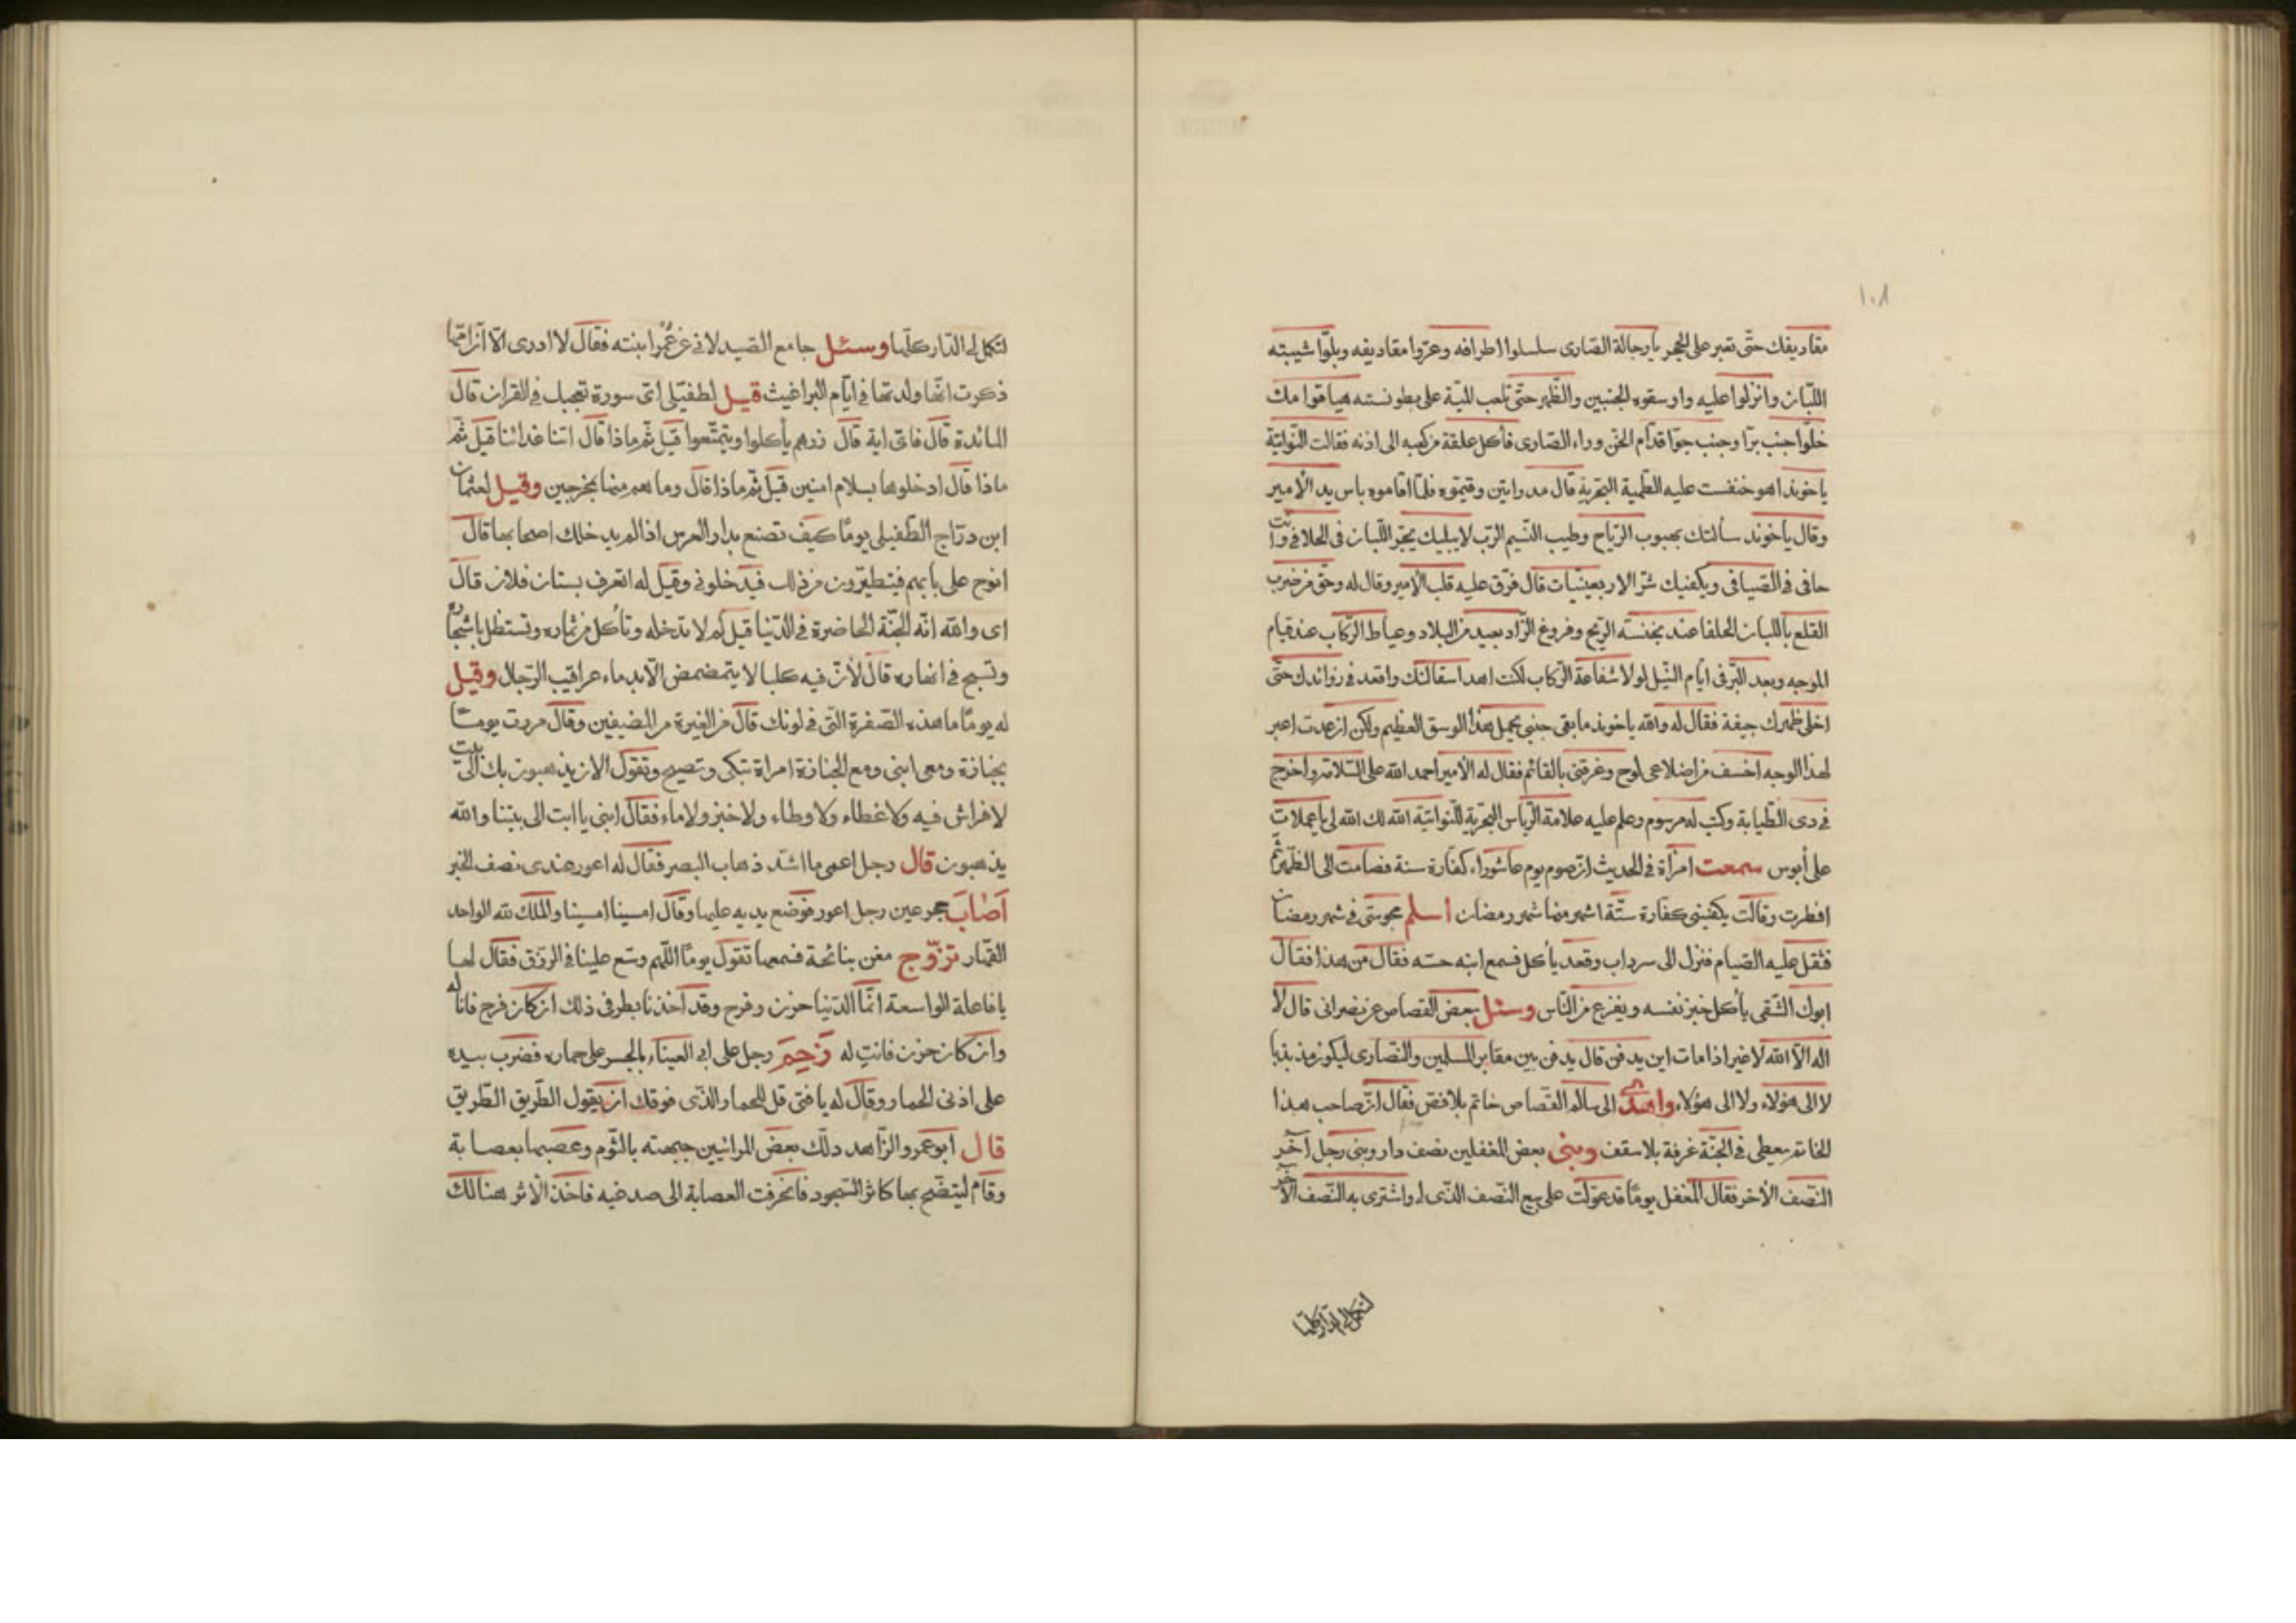 ١٠٨
مقاديفك حتى تعبر على الحجر يا رجالة الصارى سلسلوا اطرافه وعروا مقاديفه وبلوا شيبته
اللبان وانزلوا عليه واوسقوه الجنبين والظهر حتى تلعب المية على بطونسته هيا قوامك
خلوا جنب برا وجنب جوا قدام الخن وراء الصارى فأكل علقة من كعبه الى اذنه فقالت النواتية
ياخوند اهو خنفست عليه الطمية البحرية قال مدوا يتين وقيموه فلما اقاموه باس يد الأمير
وقال ياخوند سألتك بهبوب الرياح وطيب النسيم الرب لا يبليك بجر اللبان فى الحلافى وانت
حافى فى الصيافى ويكفيك شر الاربعينيات قال فرق عليه قلب الامير وقال له وحق من ضرب
القلع باللبان الحلفا عند بخنسة الريح وفروغ الزاد بعيد من البلاد وعياط الركاب عند قيام
الموجه وبعد البر فى ايام النيل لولا شفاعة الركاب لكنت اهد اسقالتك واقعد فى زوائدك حتى
اخلى ظهرك جيفة فقال له والله ياخوند ما بقى جنبى يحمل هذا الوسق العظيم ولكن ان عدت اعبر
لهذا الوجه اخسف من اضلاعى لوح وغرقنى بالقائم فقال له الأمير احمد الله على السلامة واخرج
فى دى الطيابة وكتب له مرسوم وعلم عليه علامة الرياس البحرية للنواتية الله لك الله لى يا عملات
على أبوس سمعت امرأة فى الحديث ان صوم يوم عاشوراء كفارة سنة فصامت الى الظهر ثم
افطرت وقالت يكفينى كفارة ستة اشهر منها شهر رمضان اسلم مجوسى فى شهر رمضان
فثقل عليه الصيام فنزل الى سرداب وقعد يأكل فسمع ابنه حسه فقال من هذا فقال
ابوك الشقى يأكل خبز نفسه ويفزع من الناس وسئل بعض القصاص عن نصرانى قال لا
اله الا الله لا غير اذا مات اين يدفن قال يدفن بين مقابر المسلمين والنصارى ليكون مذبذبا
لا الى هؤلاء ولا الى هؤلاء واهدى الى سالم القصاص خاتم بلا فص فقال ان صاحب هذا
الخاتم يعطى فى الجنة غرفة بلا سقف وبنى بعض المغفلين نصف دار وبنى رجل آخر
النصف الأخر فقال المغفل يوما قد عولت على بيع النصف الذى لى واشترى به النصف الآخر
لتكمل لى الدار كلها
لتكمل لى الدار كلها وسئل جامع الصيدلانى عن عمر ابنته فقال لا ادرى الا ان امها
ذكرت انها ولدتها فى ايام البراغيث قيل لطفيلى اى سورة تعجبك فى القران قال
المائدة قال فاى اية قال ذرهم يأكلوا ويتمتعوا قيل ثم ماذا قال اتنا غدائنا قيل ثم
ماذا قال ادخلوها بسلام امنين قيل ثم ماذا قال وما هم منها بمخرجين وقيل لعثمان
ابن دراج الطفيلى يوما كيف تصنع بدار العرس اذا لم يدخلك اصحابها قال
انوح على بابهم فيتطيرون من ذلك فيدخلونى وقيل له اتعرف بستان فلان قال
اى والله انه الجنة الحاضرة فى الدنيا قيل لم لا تدخله وتأكل من ثماره وتستظل باشجاره
وتسبح فى انهاره قال لأن فيه كلبا لا يتمضمض الا بدماء عراقيب الرجال وقيل
له يوما ما هذه الصفرة التى فى لونك قال من الفترة من المضيفين وقال مررت يوما
بجنازة ومعى ابنى ومع الجنازة امراة تبكى وتصيح وتقول الان يذهبون بك الى بيت
لا فراش فيه ولا غطاء ولا وطاء ولا خبز ولا ماء فقال ابنى يا ابت الى بيتنا والله
يذهبون قال رجل اعمى ما اشد ذهاب البصر فقال له اعور عندى نصف الخبر
اصاب حجر عين رجل اعور فوضع يديه عليها وقال امسينا امسينا والملك لله الواحد
القهار تزوج مغن بنائحة فسمعها تقول يوما اللهم وسع علينا فى الرزق فقال لها
يا فاعلة الواسعة انما الدنيا حزن وفرح وقد اخذنا بطرفى ذلك ان كان فرح فانا له
وان كان حزن فانت له زحم رجل على ابى العيناء بالجسر على حماره فضرب بيده
على اذنى الحمار وقال له يا فتى قل للحمار الذى فوقك ان يقول الطريق الطريق
قال ابو عمرو الزاهد دلك بعض المرائيين جبهته بالثوم وعصبها بعصابة
وقام ليتضح بها كاثر السجود فانحرفت العصابة الى صدغيه فاخذ الأثر هنالك